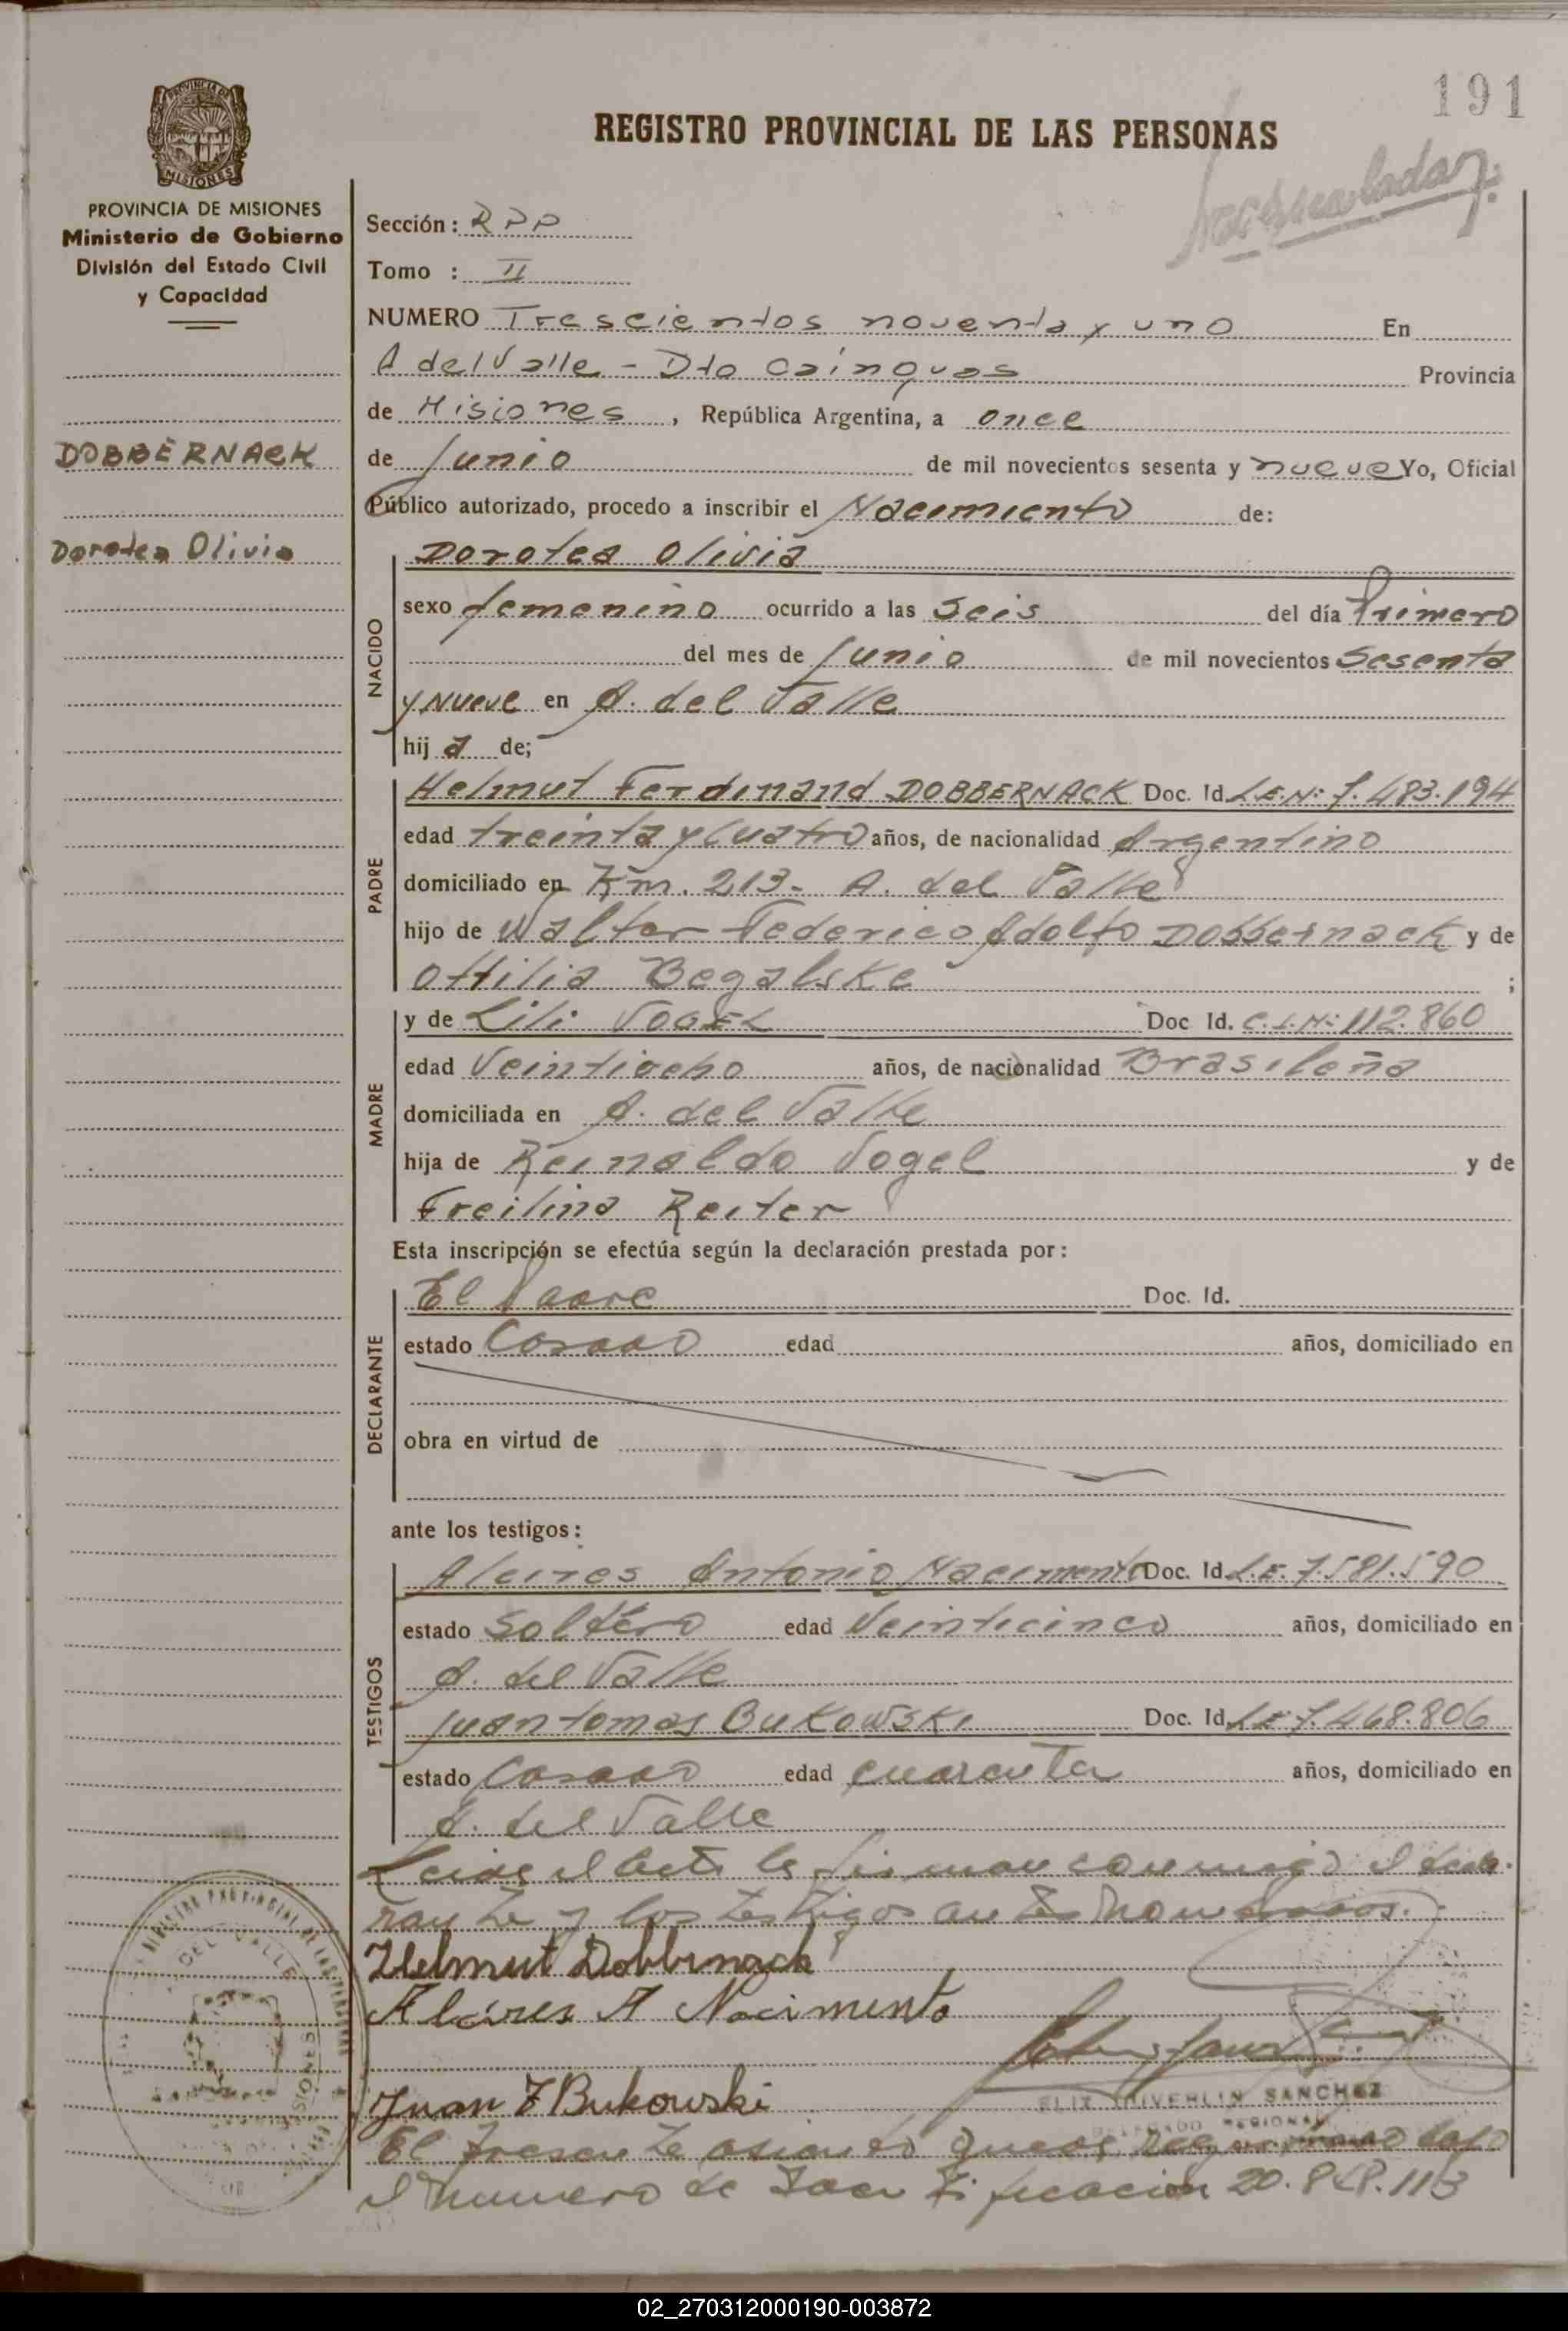 191
REGISTRO PROVINCIAL DE LAS PERSONAS
PROVINCIA DE
MISIONES
PROVINCIA DE MISIONES
Ministerio de Gobierno
División del Estado Civil
y Capacidad
DOBBERNACK
Dorotea Olivia
Sección: RPP
Tomo : II
NUMERO Trescientos noventa y uno En
A del Valle - Dto Cainguas Provincia
de Misiones, República Argentina, a once
de Junio de mil novecientos sesenta y nueve Yo, Oficial
Público autorizado, procedo a inscribir el Nacimiento de:
NACIDO
Dorotea Olivia
sexo femenino ocurrido a las Seis del día Primero
del mes de Junio de mil novecientos Sesenta
y Nueve en A. del Valle
hija de;
PADRE
Helmut Ferdinand DOBBERNACK Doc. Id. L.E.N: 7.483.194
edad treinta y cuatro años, de nacionalidad Argentino
domiciliado en Km. 213 - A. del Valle
hijo de Walter Federico Adolfo Dobbernack y de
Ottilia Begalske ;
MADRE
y de Lili VOGEL Doc Id. C.I.N: 112.860
edad Veintiocho años, de nacionalidad Brasileña
domiciliada en A. del Valle
hija de Reinaldo Vogel y de
Freilina Reiter
Esta inscripción se efectúa según la declaración prestada por:
DECLARANTE
El Padre Doc. Id.
estado Casado edad años, domiciliado en
obra en virtud de
ante los testigos:
TESTIGOS
Alcires Antonio Nacimento Doc. Id. L.E. 7.581.590
estado Soltero edad Veinticinco años, domiciliado en
A. del Valle
Juan tomas BUKOWSKI Doc. Id. L.E 7.468.806
estado Casado edad cuarenta años, domiciliado en
A. del Valle
Leida el acta la firman conmigo el decla-
rante y los testigos antes nombrados.
Helmut Dobbernack
Alcires A Nacimento
Juan T Bukowski
SANCHEZ
REGIONAL
REGISTRO PROVINCIAL DE LAS PERSONAS
DEL VALLE
MISIONES
El presente asiento queda bajo
el numero de Identificacion 20.848.113
02_270312000190-003872